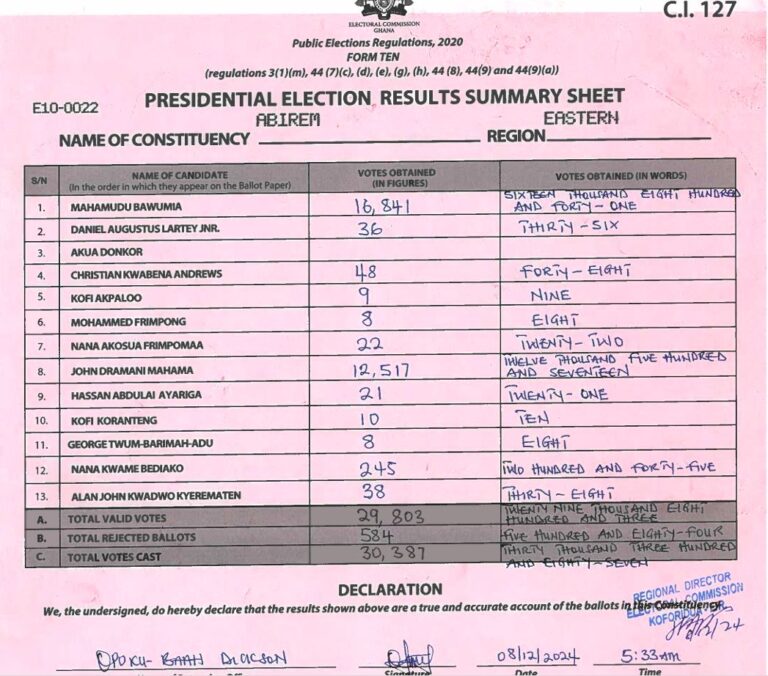 C.I. 127
ELECTORAL COMMISSION
GHANA
Public Elections Regulations, 2020
FORM TEN
(regulations 3(1)(m), 44 (7)(c), (d), (e), (g), (h), 44 (8), 44(9) and 44(9)(a))
E10-0022
PRESIDENTIAL ELECTION RESULTS SUMMARY SHEET
NAME OF CONSTITUENCY ABIREM REGION EASTERN
S/N NAME OF CANDIDATE (In the order in which they appear on the Ballot Paper) VOTES OBTAINED (IN FIGURES) VOTES OBTAINED (IN WORDS)
1. MAHAMUDU BAWUMIA 16,841 SIXTEEN THOUSAND EIGHT HUNDRED AND FORTY-ONE
2. DANIEL AUGUSTUS LARTEY JNR. 36 THIRTY-SIX
3. AKUA DONKOR
4. CHRISTIAN KWABENA ANDREWS 48 FORTY-EIGHT
5. KOFI AKPALOO 9 NINE
6. MOHAMMED FRIMPONG 8 EIGHT
7. NANA AKOSUA FRIMPOMAA 22 TWENTY-TWO
8. JOHN DRAMANI MAHAMA 12,517 TWELVE THOUSAND FIVE HUNDRED AND SEVENTEEN
9. HASSAN ABDULAI AYARIGA 21 TWENTY-ONE
10. KOFI KORANTENG 10 TEN
11. GEORGE TWUM-BARIMAH-ADU 8 EIGHT
12. NANA KWAME BEDIAKO 245 TWO HUNDRED AND FORTY-FIVE
13. ALAN JOHN KWADWO KYEREMATEN 38 THIRTY-EIGHT
A. TOTAL VALID VOTES 29,803 TWENTY NINE THOUSAND EIGHT HUNDRED AND THREE
B. TOTAL REJECTED BALLOTS 584 FIVE HUNDRED AND EIGHTY-FOUR
C. TOTAL VOTES CAST 30,387 THIRTY THOUSAND THREE HUNDRED AND EIGHTY-SEVEN
DECLARATION
We, the undersigned, do hereby declare that the results shown above are a true and accurate account of the ballots in this Constituency.
REGIONAL DIRECTOR
ELECTORAL COMMISSION
KOFORIDUA
OPOKU-BAAH DICKSON 08/12/2024 5:33AM
Signature Date Time